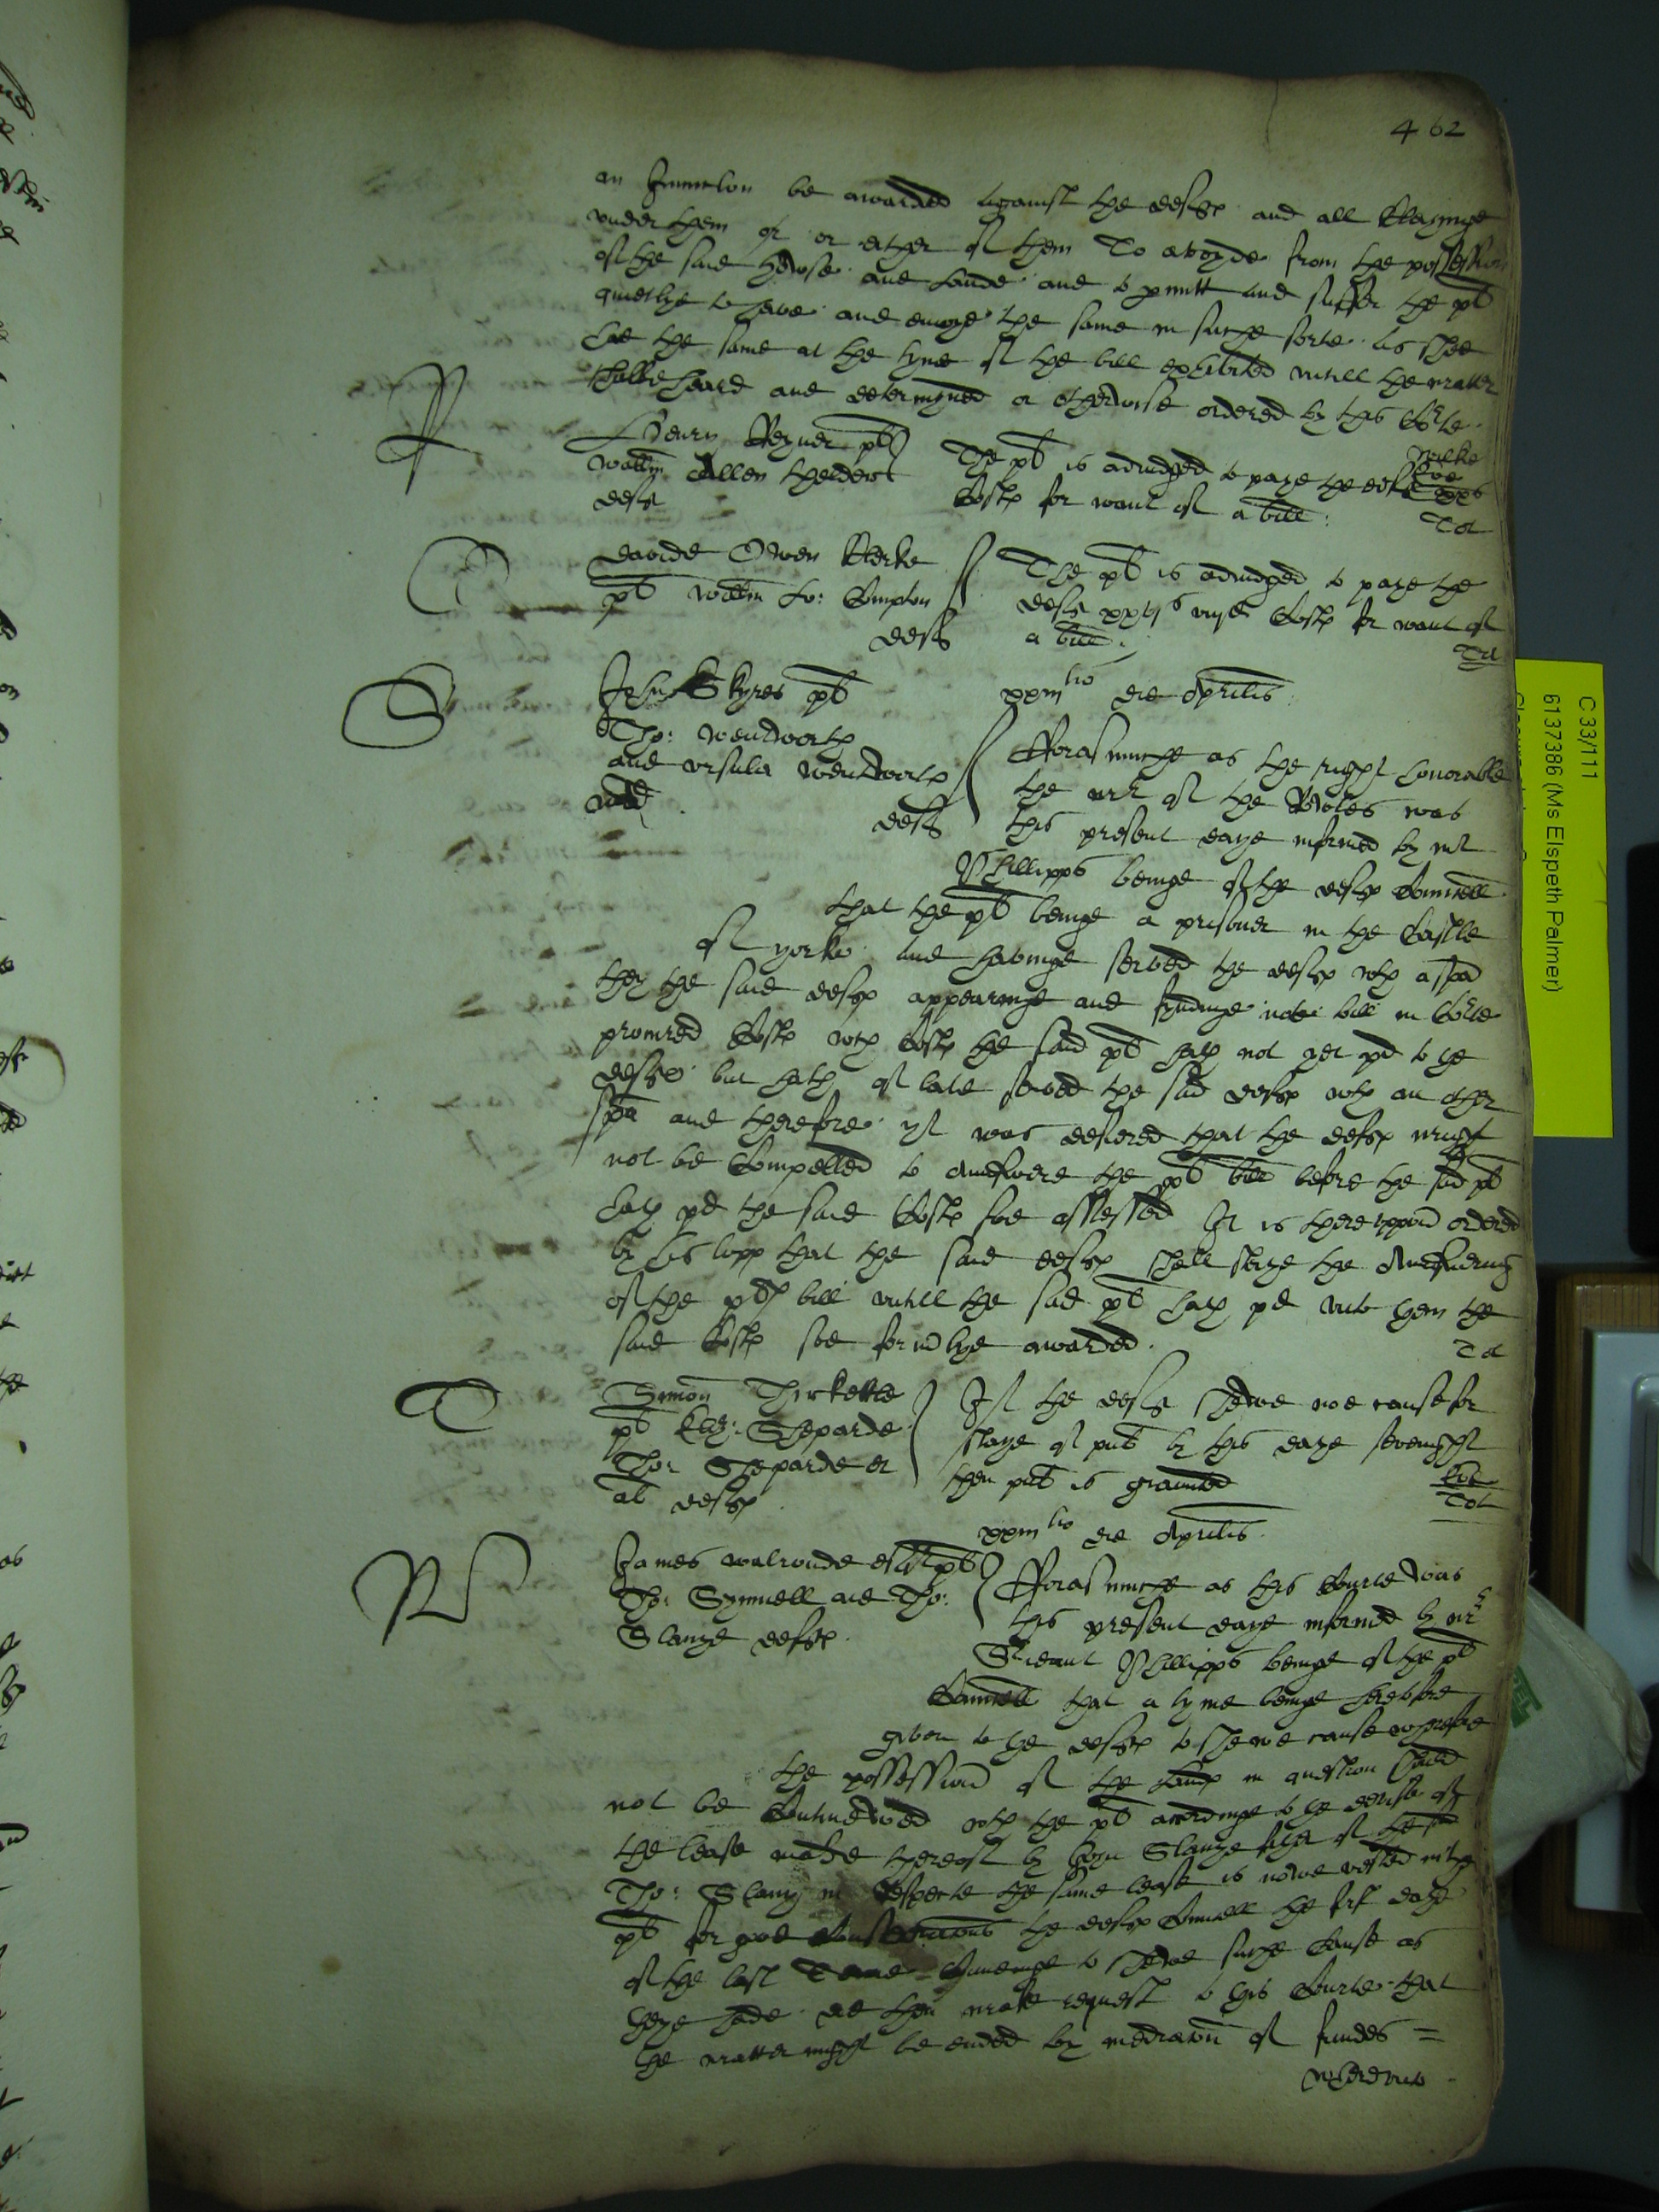 462
an Iniunccon be awarded against the deftes and all Clayminge
under them or or either of them To avoyde from the possession
of the said howse and Lande and to permitt and suffer the pl
quietlye to have and enioye the same in suche sorte as shee
had the same at the tyme of the bill exhibited untill the matter
shalbe heard and determyned or otherwise ordered by this Corte
R
Henry Reyner pl
Willm Allen thelder
deft
The pl is adiudged to paye the deft
Costes for want of a bill
O
Davide Owen Clerke
pl Willm Lo: Compton
deft
The pl is adiudged to paye the
deft costes for want of
a bill
S
John Skyres pl
Tho: Wentworth
and Ursula Wentworth
wid
deft
die Aprilis
Fforasmuche as the right honorable
the mr of the Rolles was
this present daye informed by mr
Phillipps beinge of the deftes Councell
that the pl beinge a prisoner in the Castle
of Yorke and havinge served the deftes with a spa
they the said deftes appearinge and fyndinge noe bill in Corte
procured Costes with Costes the said pl hath not yet pd to the
deftes but hath of late served the said deftes with an other
spa and therefore yt was desiered that the deftes might
not be Compelled to Aunswere the pl bill before the said pl
hath pd the said Costes soe assessed It is thereuppon ordered
by his lopp that the said deftes shall staye the Aunsweringe
of the pltes bill untill the said pl hath pd unto them the
said Costes soe formerlye awarded
T
Simon Thirkettle
pl Sheparde
Tho: Sheparde et
al deftes
If the deftes shewe noe cause for
staye of publ by this daye sevenight
then publ is graunted
W
die Aprilis
James Walronde esqr pl
Tho: Synnell and Tho:
Slanye deftes
Fforasmuche as this Courte was
this present daye informed by mr
Sieant Phillipps beinge of the pl
Councell that a tyme beinge heretofore
given to the deftes to shewe cause wherefore
the possession of the landes in question should
not be Contynewed with the pl accordinge to the devise of
the lease made thereof by John Slanye father of the said
Tho: Slany in respecte the same lease is nowe vested in the
pl for good Consideracions the deftes Councell the first daye
of the last Terme Comeinge to shewe suche Cause as
theye hadd did then make request to this Courte that
the matter might be ended by mediacon of frindes =
wherunto
C 33/111
6137386 (Ms Elspeth Palmer)